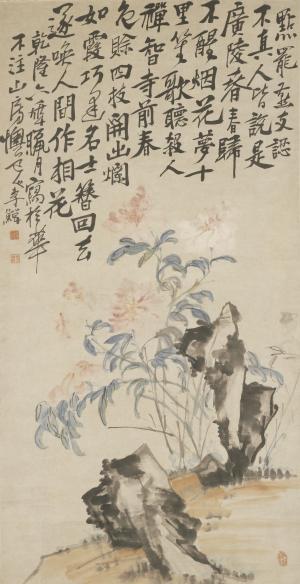 點罷燕支認
不真人皆說是
廣陵春春歸
不醒烟花夢十
里笙歌聽殺人
禪智寺前春
色賒四枝開出爛
如霞巧逢名士簪回去
遂喚人間作相花
乾隆六年臘月寫於華
不注山房懊道人李鱓